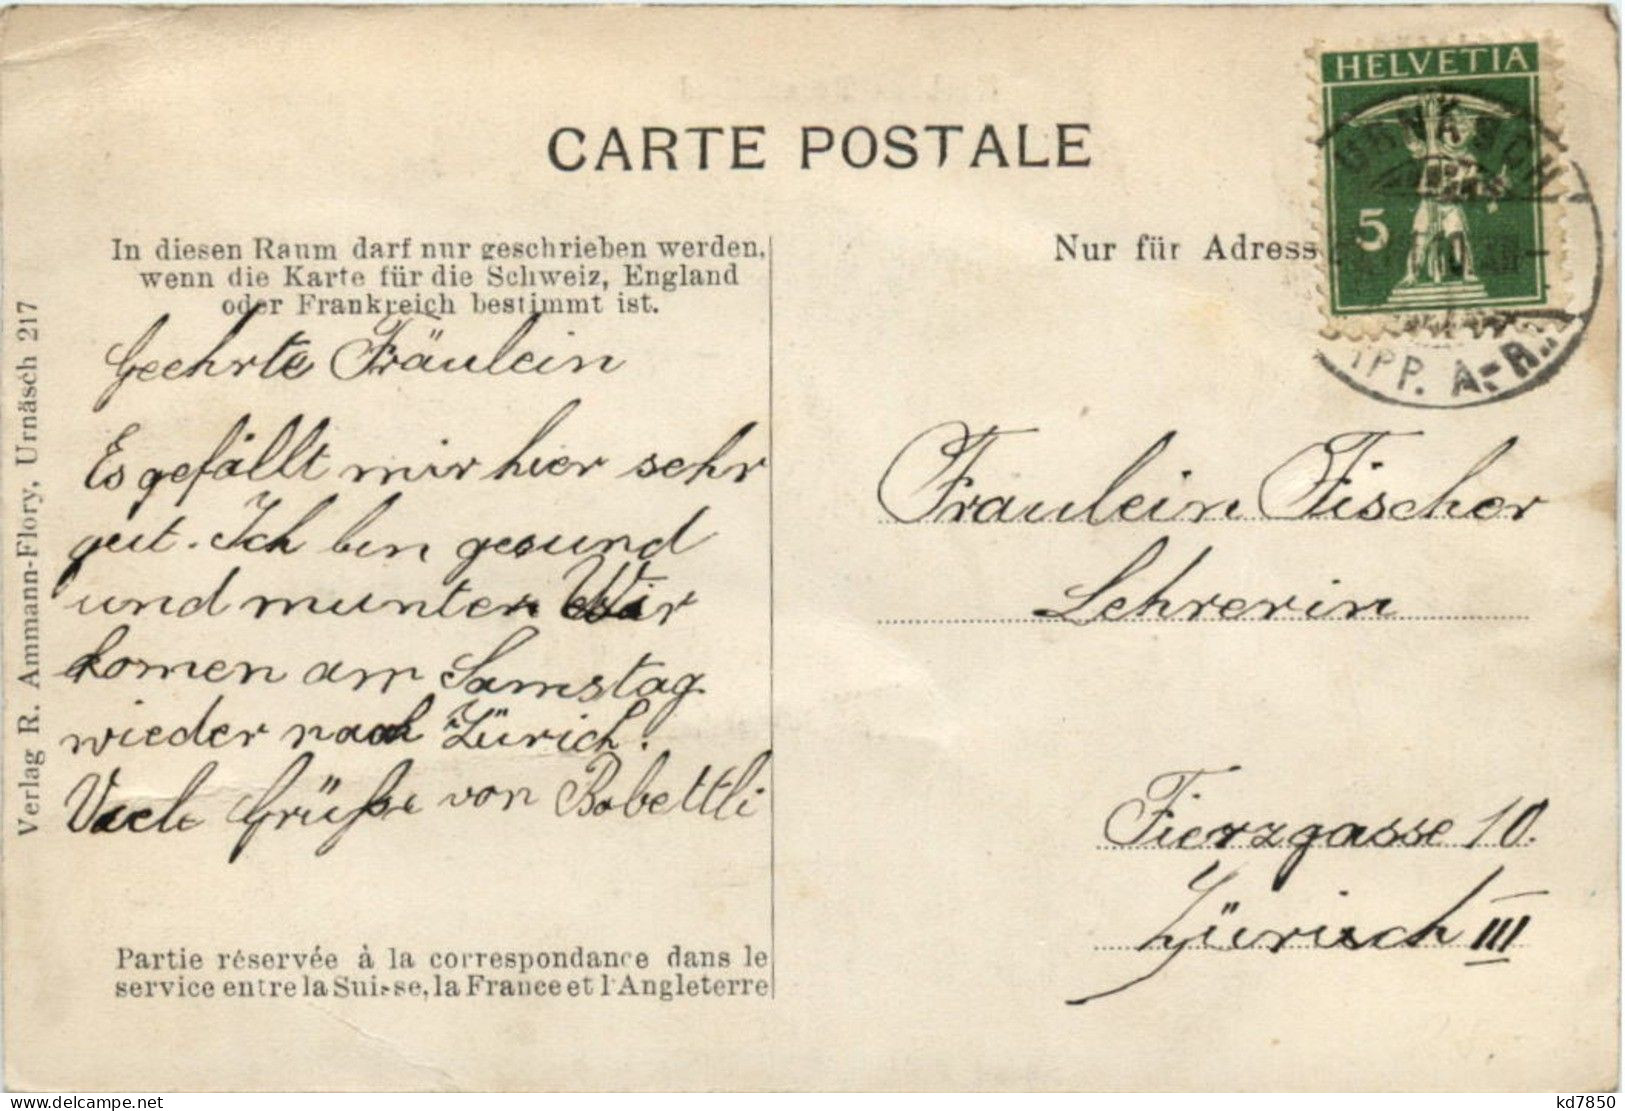 CARTE POSTALE
HELVETIA
5
URNÄSCH
10
APP. A.-R.
In diesen Raum darf nur geschrieben werden,
wenn die Karte für die Schweiz, England
oder Frankreich bestimmt ist.
Nur für Adress
Geehrte Fräulein
Es gefällt mir hier sehr
gut. Ich bin gesund
und munter Wir
komen am Samstag
wieder nach Zürich.
Viele Grüße von Babettli
Fräulein Fischer
Lehrerin
Fierzgasse 10.
Zürich III
Partie réservée à la correspondance dans le
service entre la Suisse, la France et l'Angleterre
Verlag R. Ammann-Flory, Urnäsch 217
www.delcampe.net
kd7850